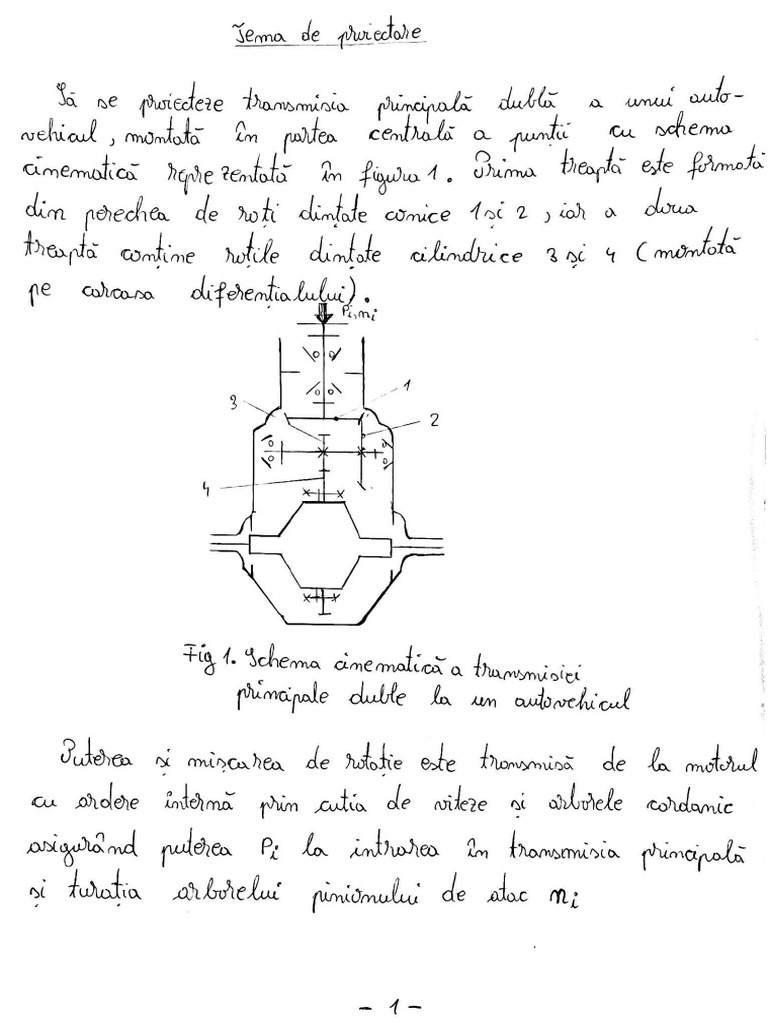 Tema de proiectare
Să se proiecteze transmisia principală dublă a unui auto-
vehicul, montată în partea centrală a punții cu schema
cinematică reprezentată în figura 1. Prima treaptă este formată
din perechea de roți dințate conice 1 și 2, iar a doua
treaptă conține roțile dințate cilindrice 3 și 4 (montată
pe carcasa diferențialului).
Pi, ni
1
3
2
4
Fig 1. Schema cinematică a transmisiei
principale duble la un autovehicul
Puterea și mișcarea de rotație este transmisă de la motorul
cu ardere internă prin cutia de viteze și arborele cardanic
asigurând puterea Pi la intrarea în transmisia principală
și turația arborelui pinionului de atac ni
- 1 -